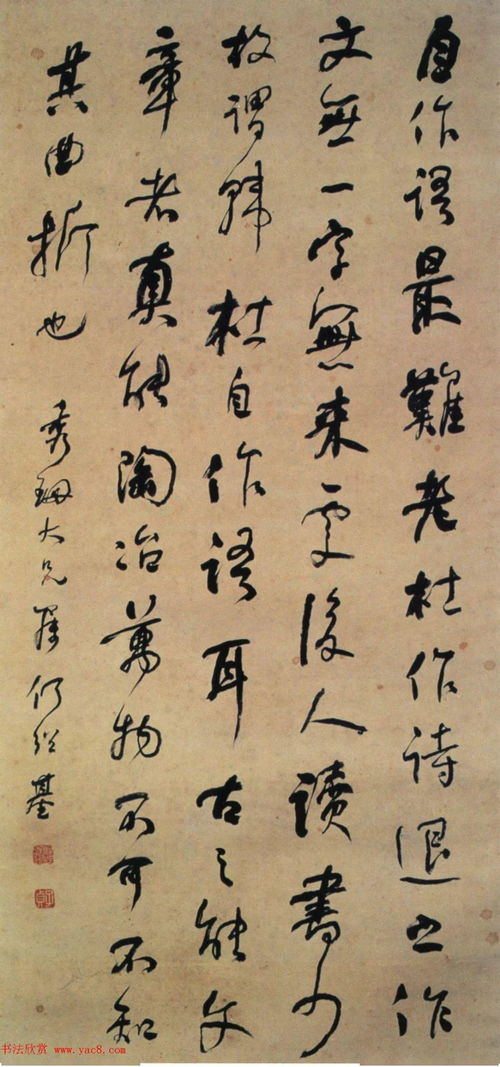 自作語最難老杜作诗退之作
文無一字無来處後人讀書少
故謂韩杜自作語耳古之能文
章者真能陶冶萬物不可不知
其曲折也
秀珊大兄属何绍基
书法欣赏 www.yac8.com